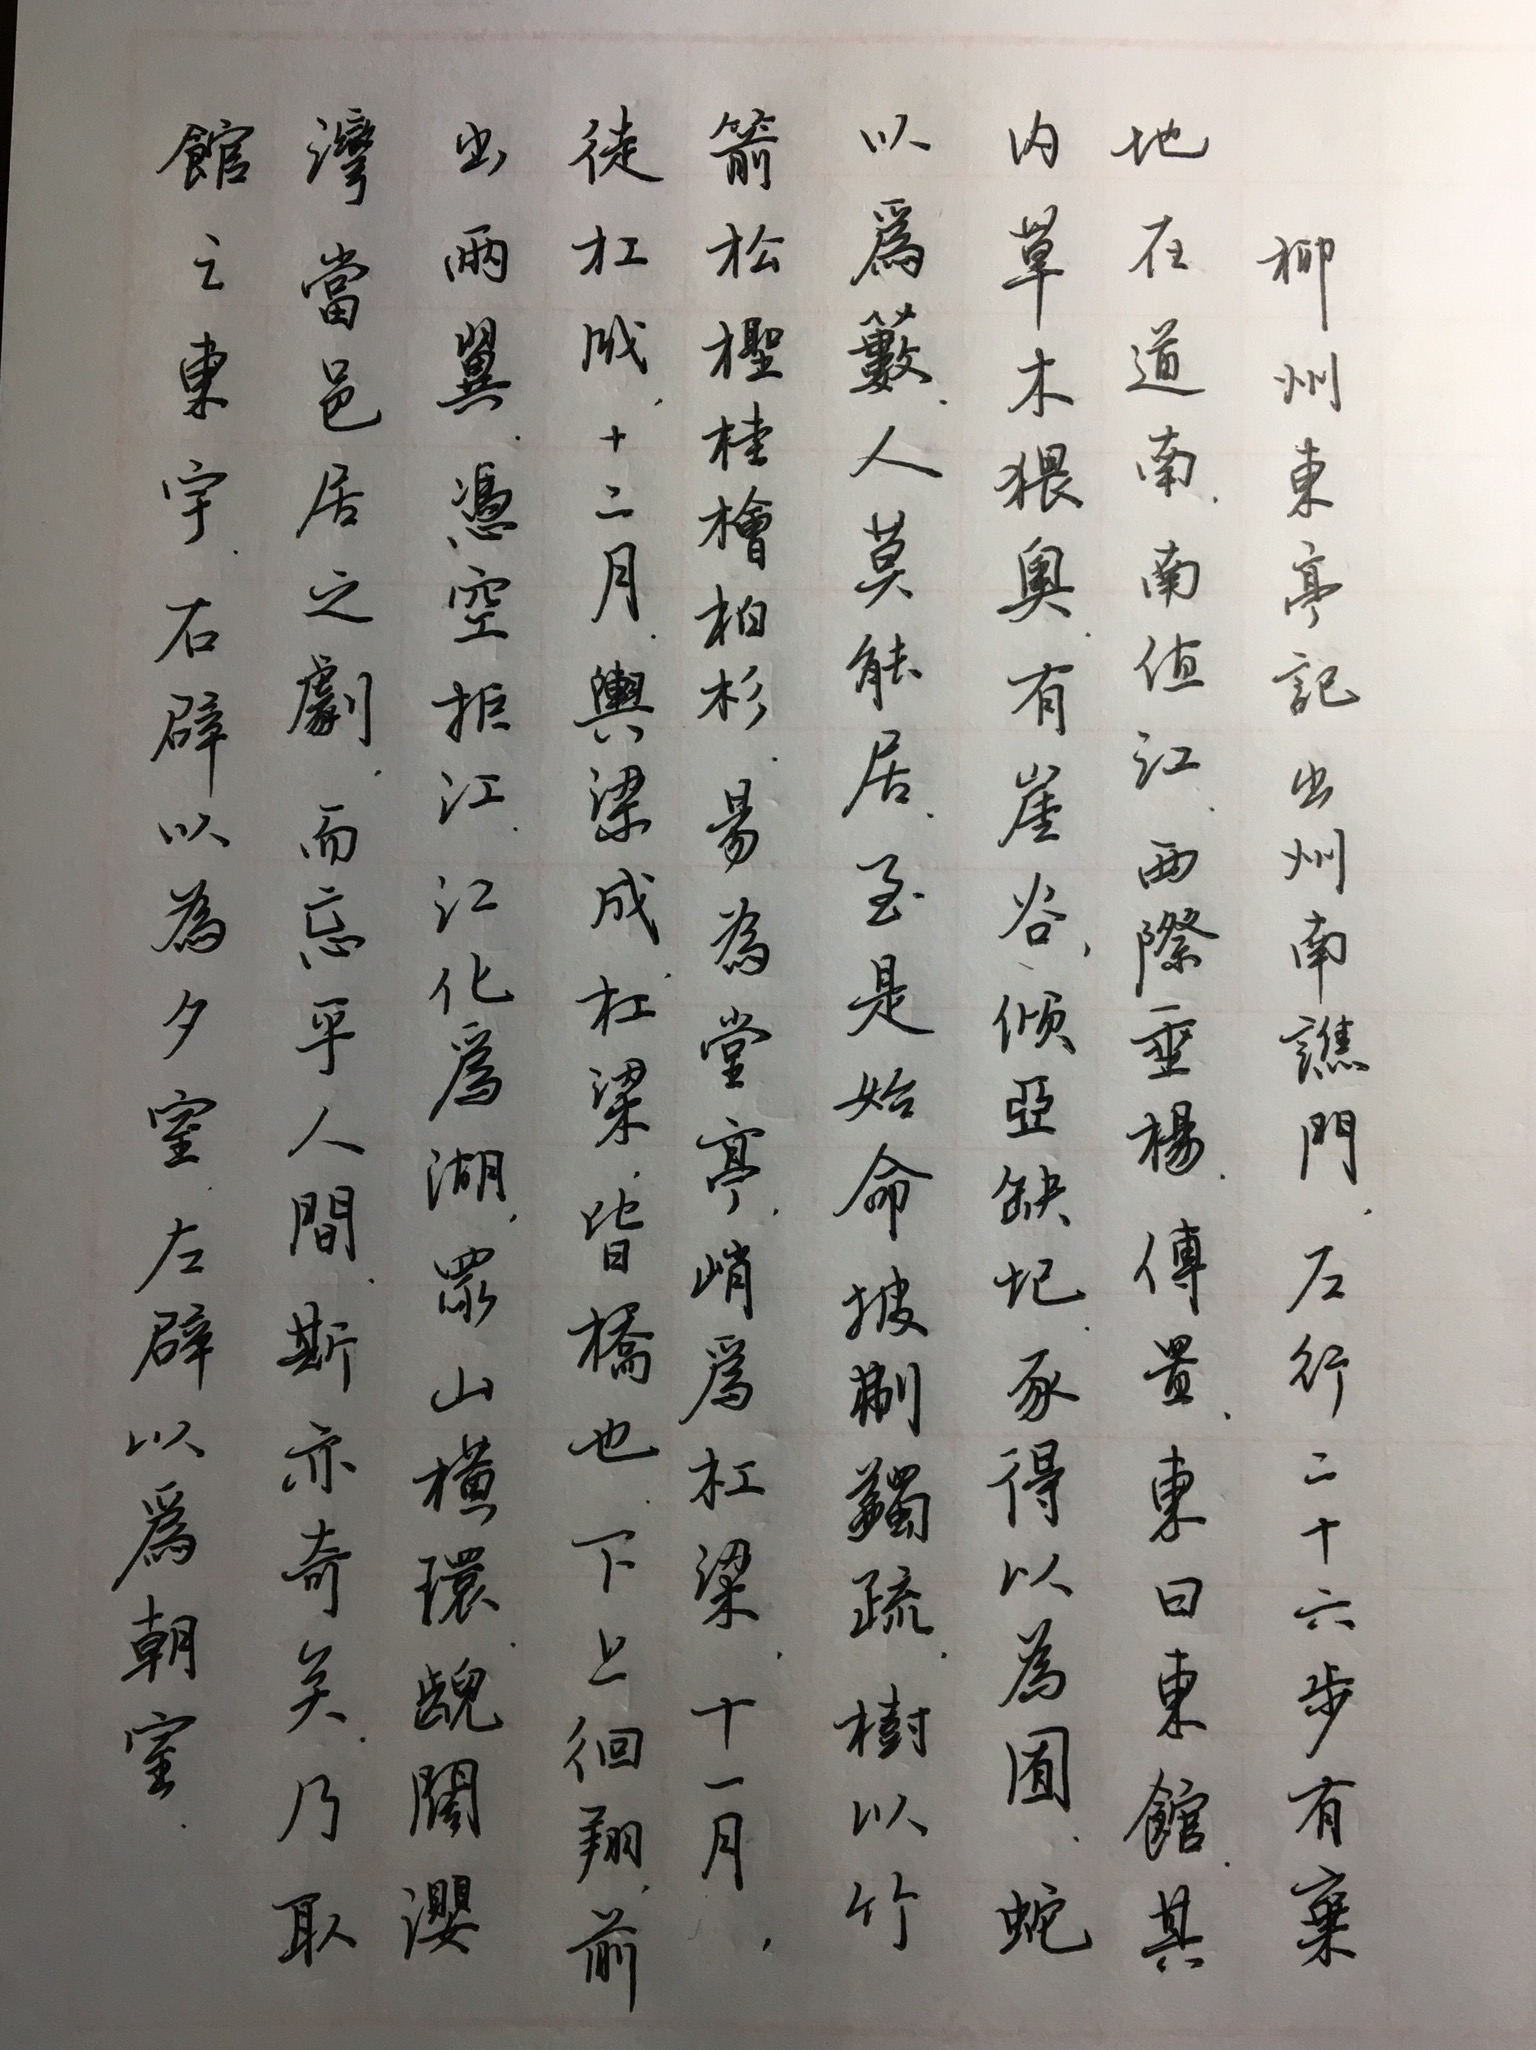 柳州東亭記出州南譙門.左行二十六步有棄
地在道南.南值江.西際垂楊.傳置.東曰東館.其
内草木猥奥.有崖谷,傾亞缺圮.豕得以為囿.蛇
以爲藪.人莫能居.至是始命披刜蠲疏.樹以竹
箭松檉桂檜柏杉.易為堂亭.峭爲杠梁.十一月,
徒杠成.十二月.輿梁成.杠梁.皆橋也.下上徊翔.前
出兩翼.憑空拒江.江化爲湖.眾山橫環.嶛闊瀴
灣當邑居之劇.而忘乎人間.斯亦奇矣.乃取
館之東宇.右辟以為夕室.左辟以爲朝室.